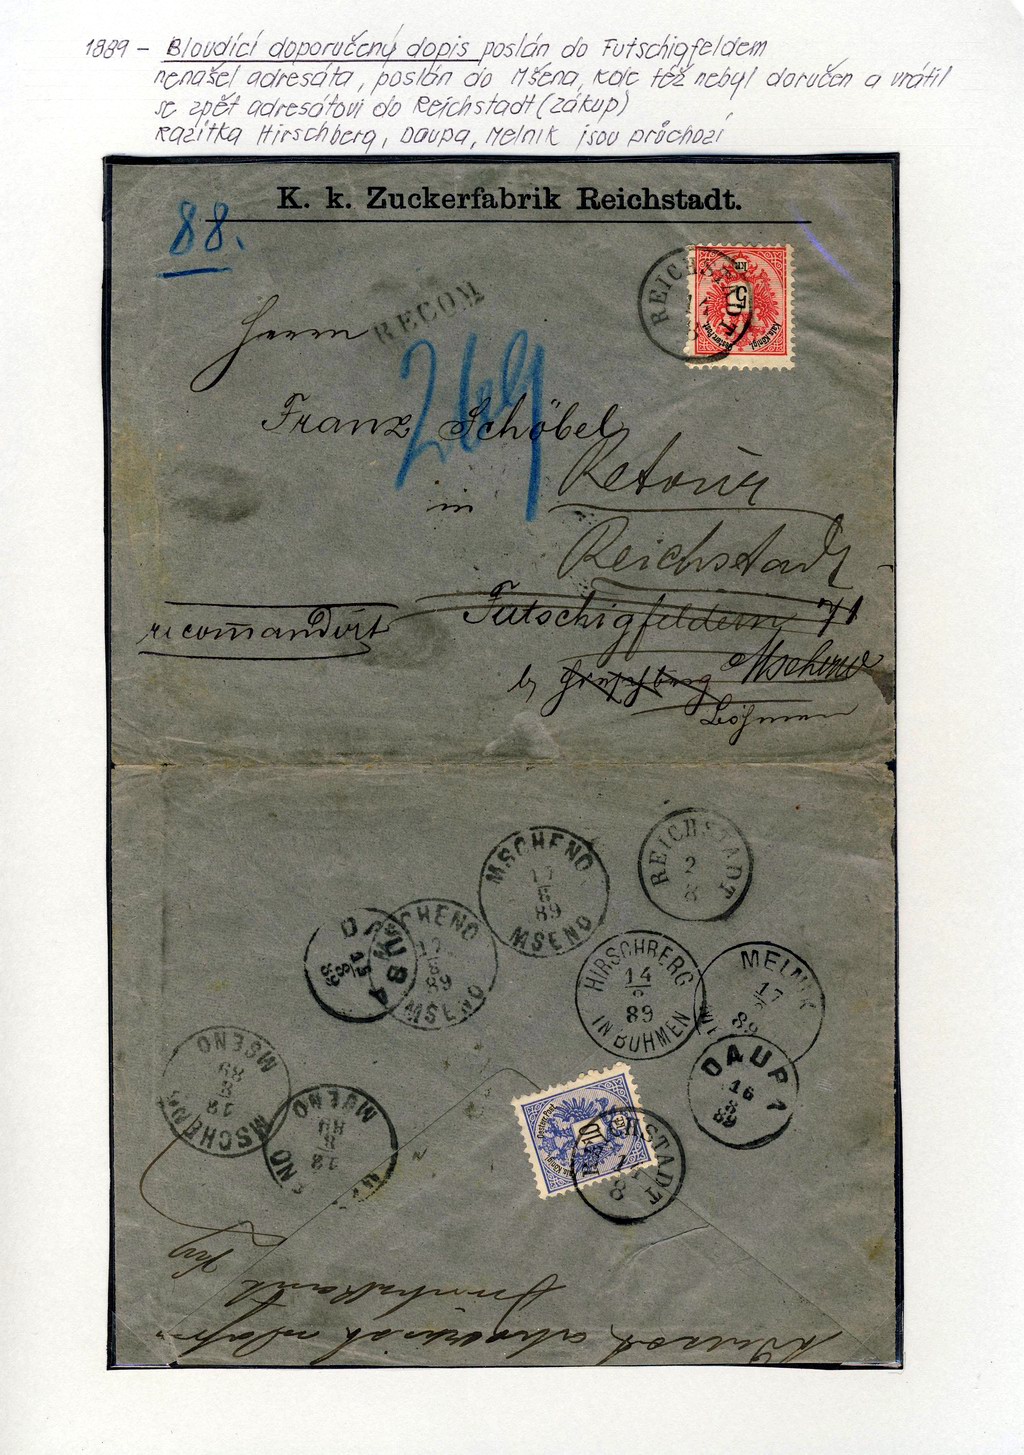 1889 - Bloudící doporučený dopis poslán do Futschigfeldem
nenašel adresáta, poslán do Mšena, kde též nebyl doručen a vrátil
se zpět adresátovi do Reichstadt (Zákup)
Razítka Hirschberg, Daupa, Melnik jsou průchozí
K. k. Zuckerfabrik Reichstadt.
88.
REICHSTADT
5 kr
Kais. Königl. Oesterr. Post
RECOM
Herrn
269
Franz Schöbel
Retour
in
Reichstadt
Futschigfeldern 71
recomandirt
b/ Hirschberg Mscheno
Böhmen
MSCHENO
89
MSENO
REICHSTADT
2
8
DAUBA
15
8
89
MSCHENO
89
MSENO
HIRSCHBERG
14
89
IN BÖHMEN
MELNIK
17
89
DAUBA
16
8
89
MSENO
89
8
18
MSCHENO
MSENO
8
18
10
REICHSTADT
8